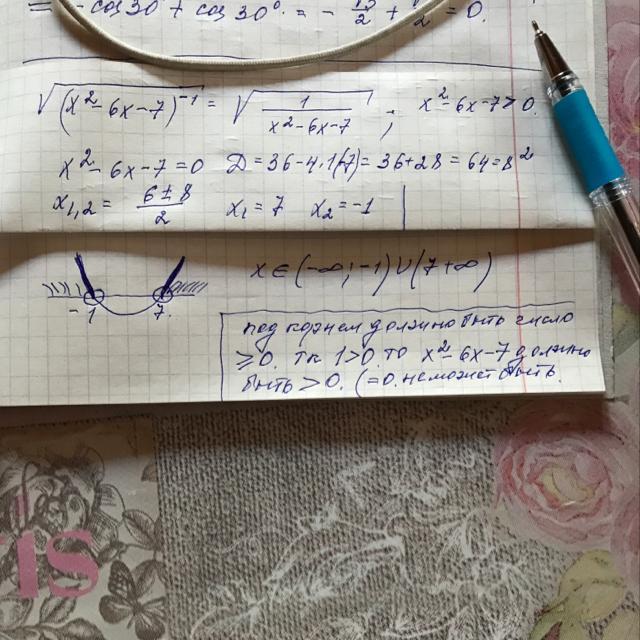 = - cos 30 + cos 30°. = - √3/2 + √3/2 = 0.
√(x² - 6x - 7)⁻¹ = √(1/(x² - 6x - 7)) ; x² - 6x - 7 > 0.
x² - 6x - 7 = 0 Д = 36 - 4·1(-7) = 36 + 28 = 64 = 8²
x₁,₂ = (6 ± 8)/2 x₁ = 7 x₂ = -1
x ∈ (-∞; -1) ∪ (7 +∞)
-1 7.
под корнем должно быть число
≥ 0. тк 1>0. то x² - 6x - 7 должно
быть > 0. (= 0. не может быть.
IS